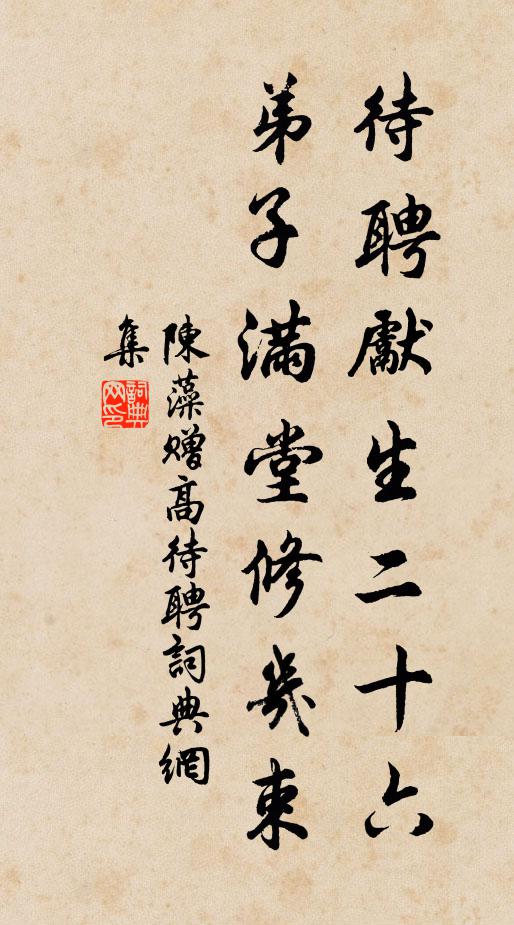 待聘獻生二十六
弟子滿堂修幾束
陳藻贈高待聘詞典網
集
詞典网印